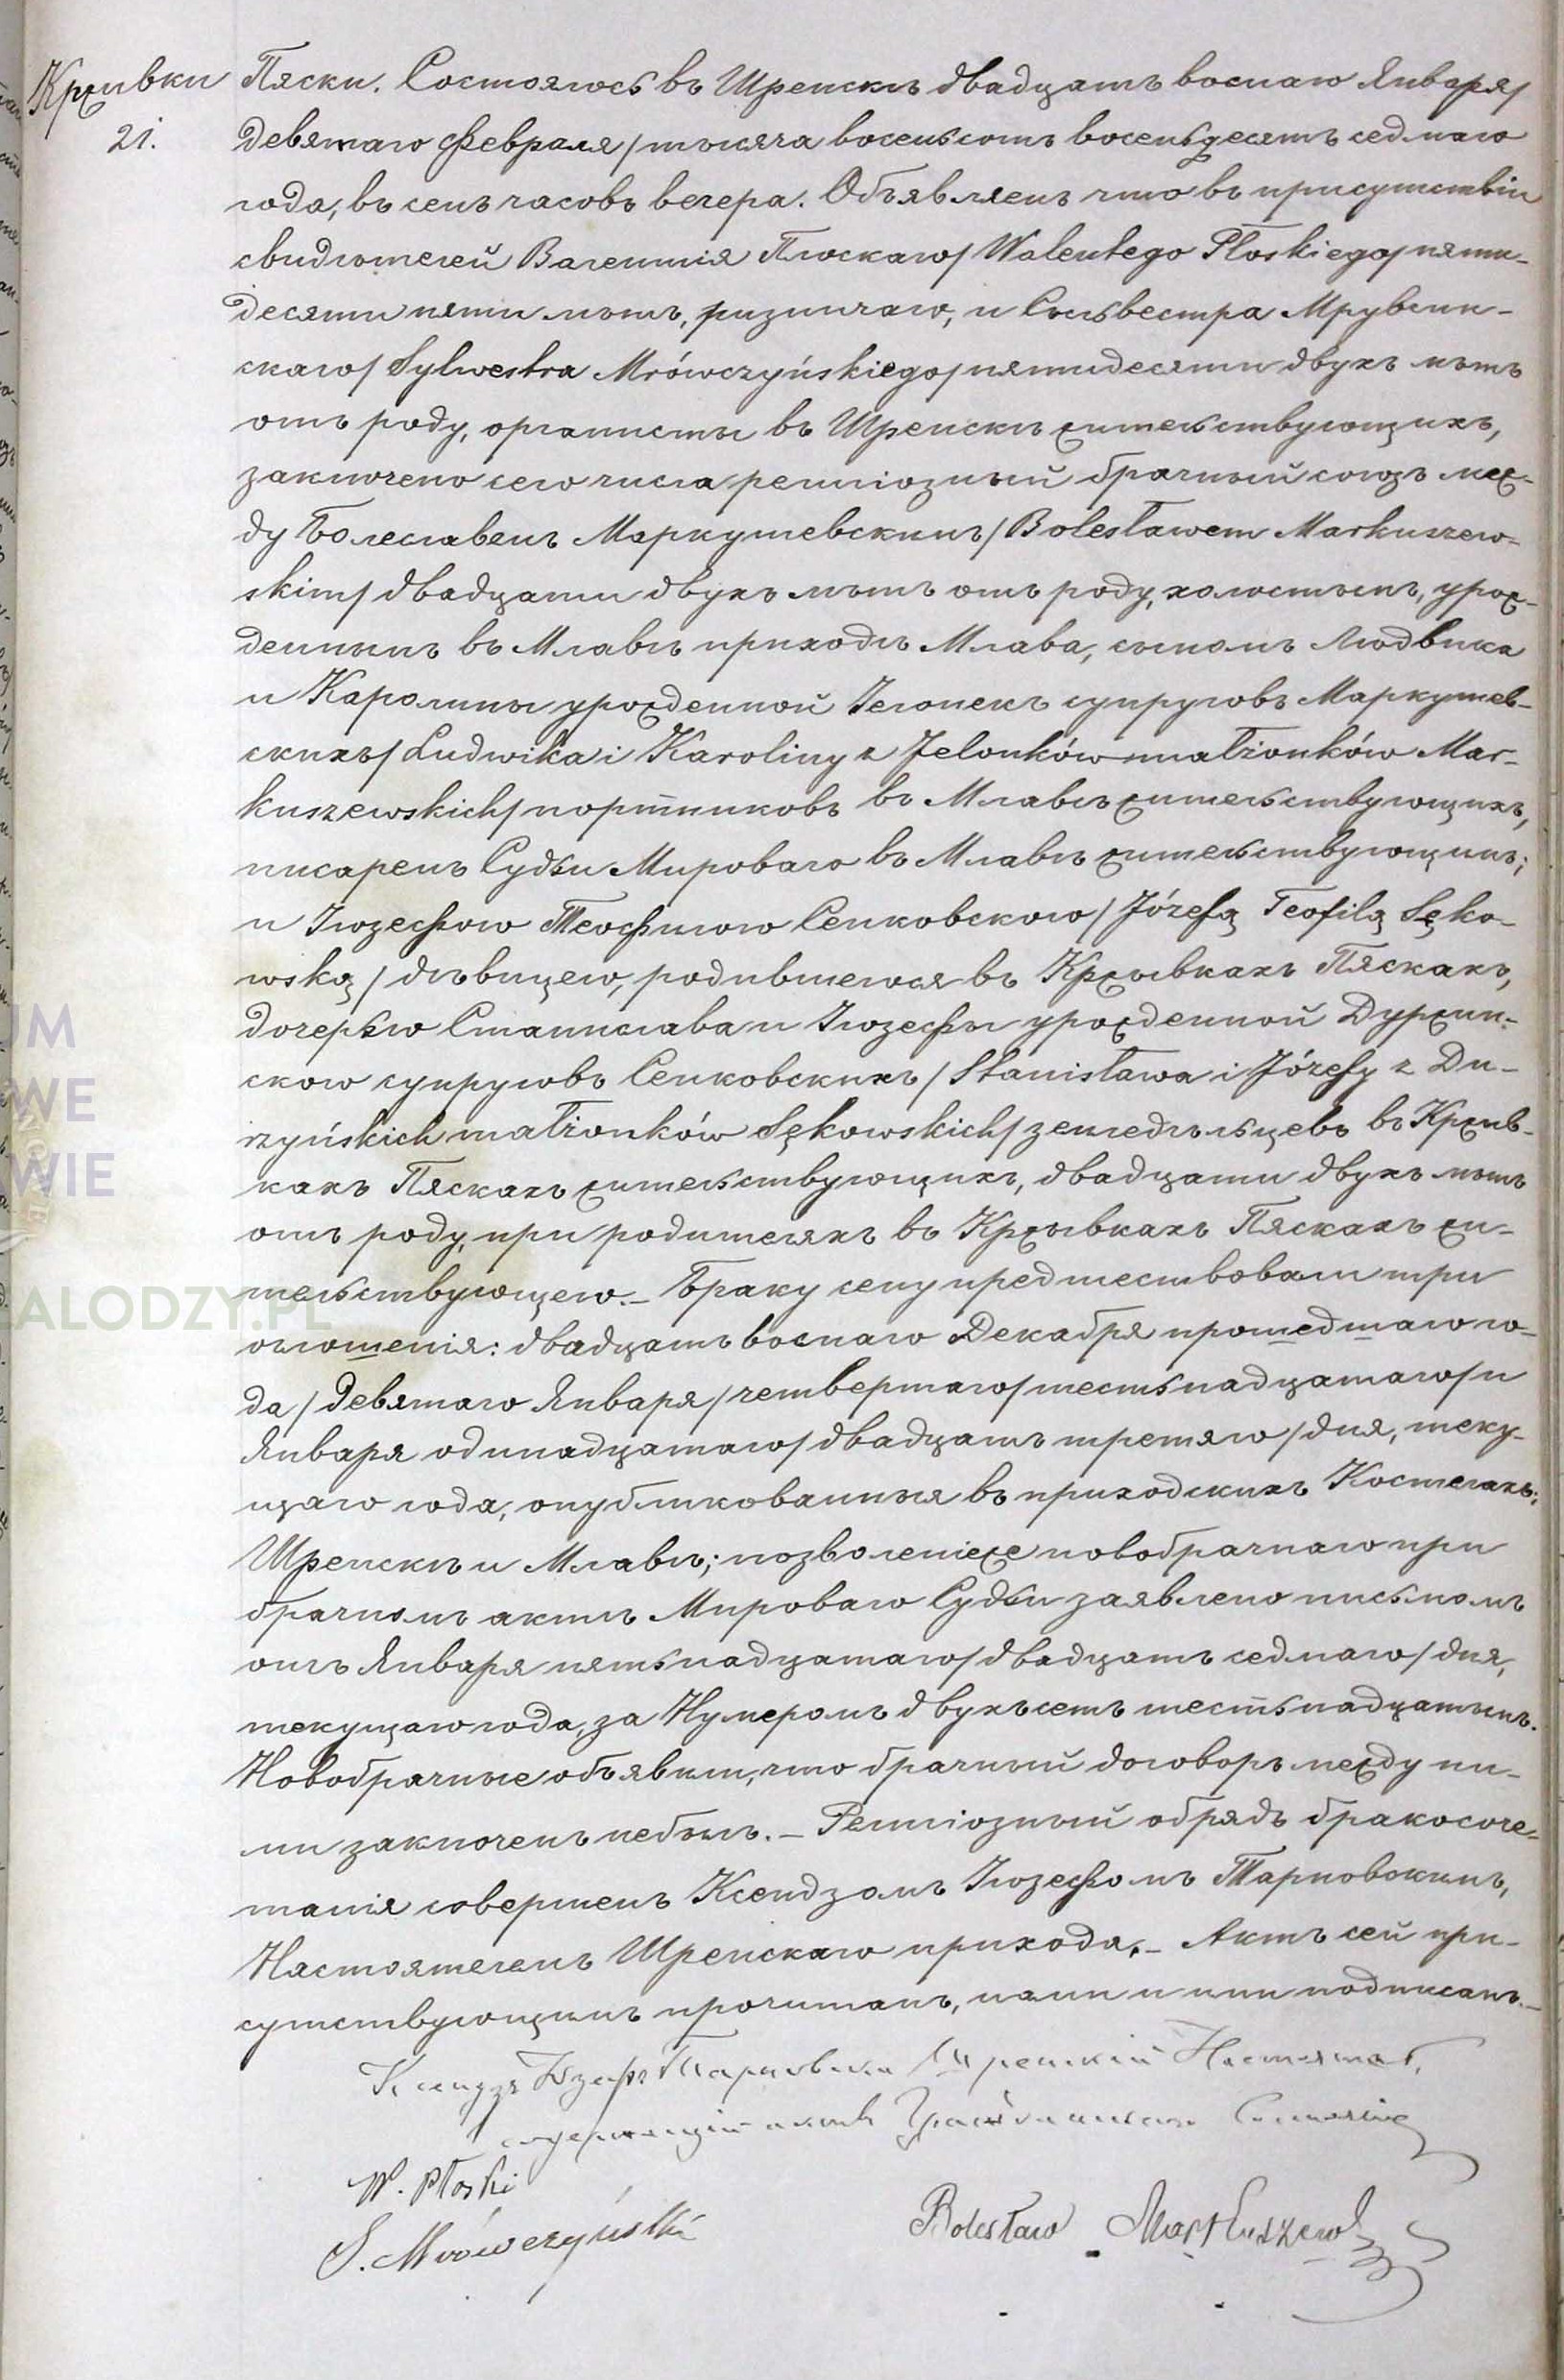 Крживки
21.
Пяски. Состоялось въ Шренскѣ двадцать восьмаго Января/
девятаго Февраля/ тысяча восемьсотъ восемьдесятъ седмаго
года, въ семъ часовъ вечера. Объявляемъ что въ присутствіи
свидѣтелей Валентія Плоскаго/ Walentego Płoskiego/ пяти-
десяти пяти лѣтъ, ризничаго, и Сильвестра Мрувчин-
скаго/ Sylwestra Mrówczyńskiego/ пятидесяти двухъ лѣтъ
отъ роду, органисты въ Шренскѣ жительствующихъ,
заключено сего числа религіозный брачный союзъ меж-
ду Болеславемъ Маркушевскимъ/ Bolesławem Markuszew-
skim/ двадцати двухъ лѣтъ отъ роду, холостымъ, урож-
деннымъ въ Млавѣ приходѣ Млава, сыномъ Людвика
и Каролины урожденной Іелонекъ супруговъ Маркушев-
скихъ/ Ludwika i Karoliny z Jelonków małżonków Mar-
kuszewskich/ портниковъ въ Млавѣ жительствующихъ,
писаремъ Судьи Мироваго въ Млавѣ жительствующимъ;
и Іюзефою Теофилою Сенковскою/ Józefą Teofilą Sęko-
wską/ дѣвицею, родившеюся въ Кржывкахъ Пяскахъ,
дочерью Станислава и Іюзефы урожденной Дуржин-
скою супруговъ Сенковскихъ/ Stanisława i Józefy z Du-
rzyńskich małżonków Sękowskich/ земледѣльцевъ въ Кржив-
кахъ Пяскахъ жительствующихъ, двадцати двухъ лѣтъ
отъ роду, при родителяхъ въ Кржывкахъ Пяскахъ жи-
тельствующею. – Браку сему предшествовали три
оглошенія: двадцать восьмаго Декабря прошедшаго го-
да/ Девятаго Января/ четвертаго/ шестьнадцатаго/ и
Января одинадцатаго/ двадцать третяго/ дня, теку-
щаго года, опубликованныя въ приходскихъ Костелахъ:
Шренскѣ и Млавѣ; позволеніеже новобрачнаго при
брачномъ актѣ Мироваго Судьи заявлено письмомъ
отъ Января пятьнадцатаго/ двадцать седмаго/ дня,
текущаго года, за Нумеромъ двухъсетъ шестьнадцатымъ.
Новобрачные объявили, что брачный договоръ между ни-
ми заключенъ небылъ. – Религіозный обрядъ бракосоче-
танія совершенъ Ксендзомъ Іюзефомъ Тарновскимъ,
Настоятелемъ Шренскаго прихода. – Актъ сей при-
сутствующимъ прочитанъ, нами и ими подписанъ. –
Ксендзъ Іозефъ Тарновски Шренскій Настоятель,
содержащій актовъ Гражданскаго Состоянія
W. Płoski
S. Mrówczyński
Bolesław Markuszewski